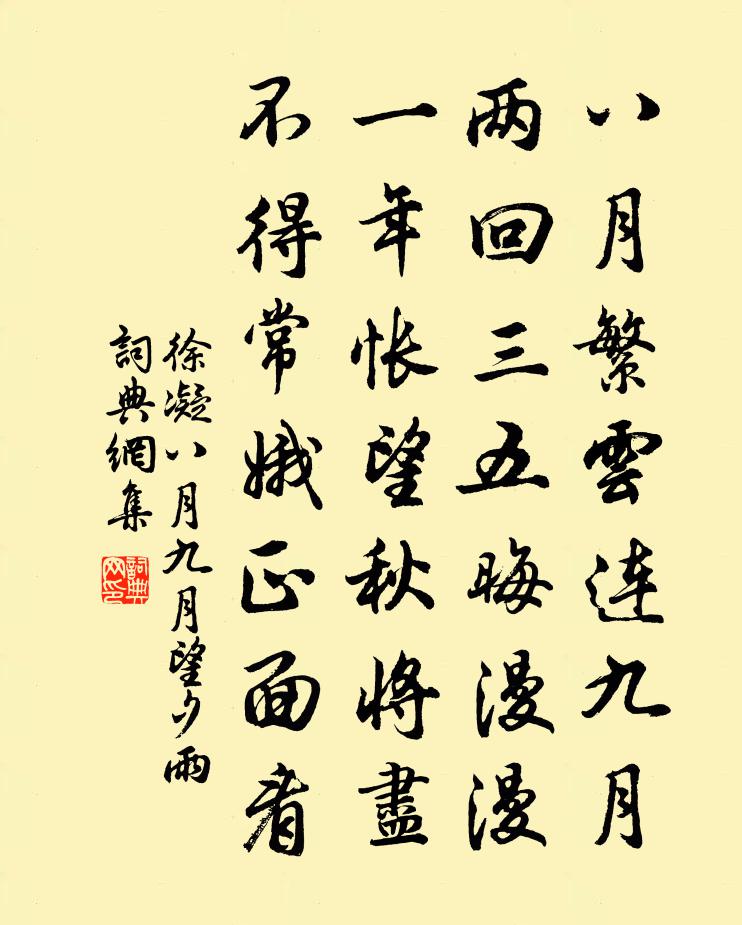 八月繁雲連九月
两回三五晦漫漫
一年悵望秋將盡
不得常娥正面看
徐凝八月九月望夕雨
詞典網集
詞典网印